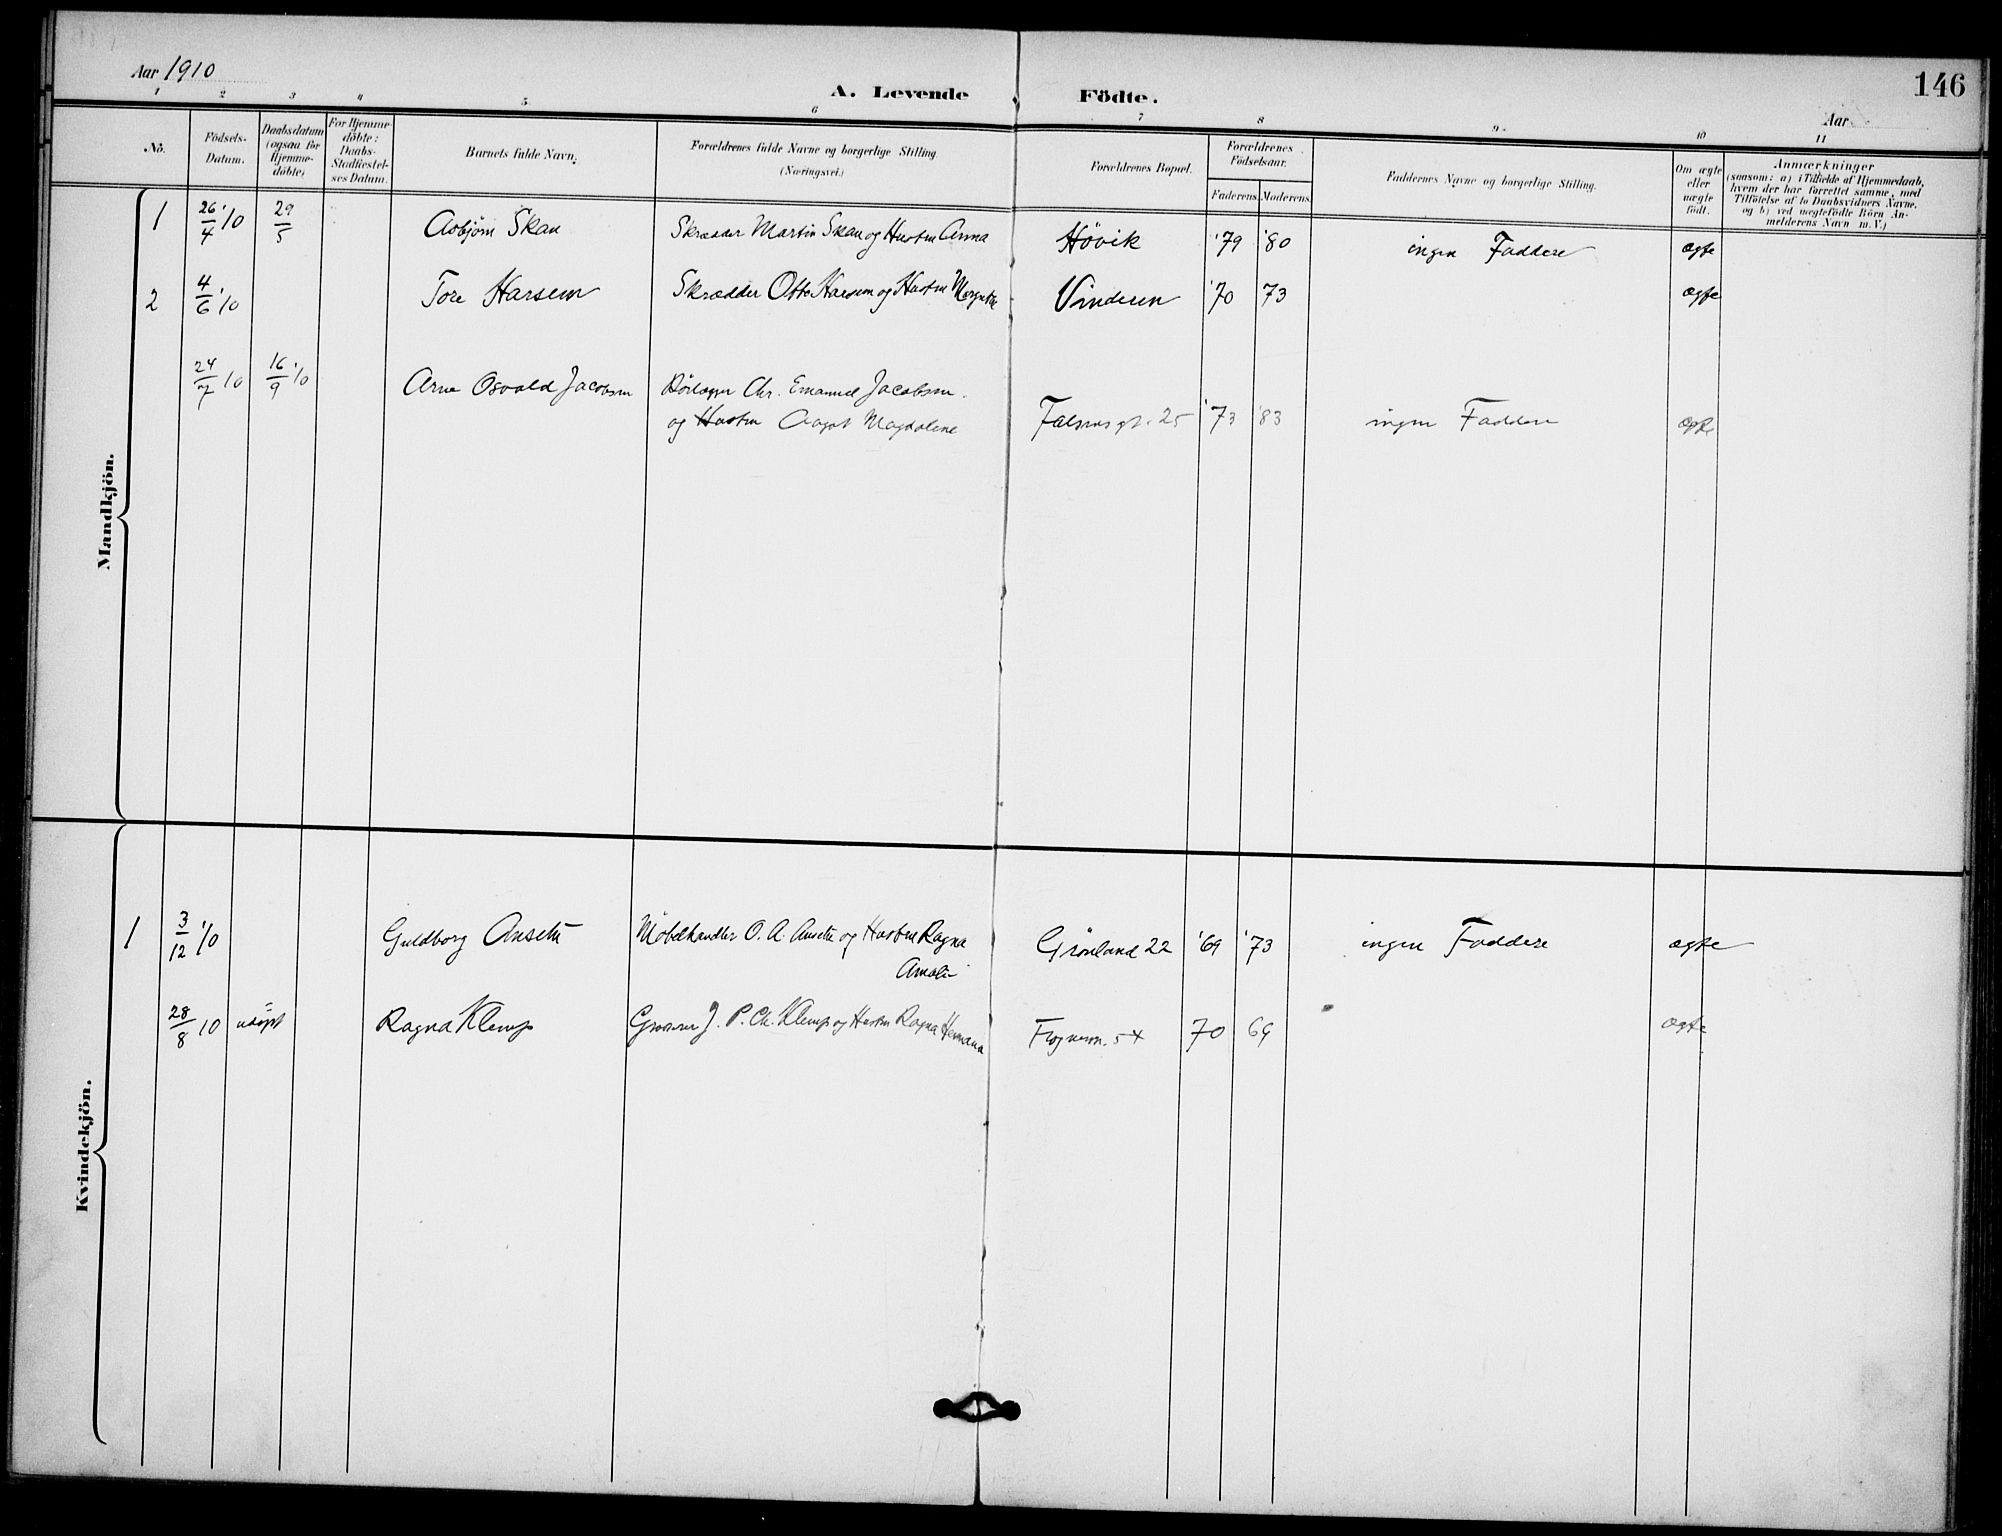 Aar 1910
A. Levende Födte.
146
Aar
1 2 3 4 5. 6 7 8 9. 10 11
No.
Födsels-Datum.
Daabsdatum (ogsaa for Hjemme-döbte)
For Hjemme-döbte: Daabs-Stadfæstel-ses Datum.
Barnets fulde Navn.
Forældrenes fulde Navne og borgerlige Stilling (Næringsvei.)
Forældrenes Bopæl.
Forældrenes Födselsaar. Faderens. Moderens.
Faddernes Navne og borgerlige Stilling.
Om ægte eller uægte födt.
Anmærkninger (saasom: a) i Tilfælde af Hjemmedaab, hvem der har forrettet samme, med Tilföielse af to Daabsvidners Navne. og b) ved uægtefödte Börn An-melderens Navn m.V.)
Mandkjön.
1 26/4 '10 29/5 Asbjørn Skau Skrædder Martin Skau og Hustru Anna Høvik '79 '80 ingen Faddere ægte
2 4/6 '10 Tore Harsem Skrædder Otto Harsem og Hustru Margrethe Vinderen '70 73 ægte
24/7 10 16/9 '10 Arne Osvald Jacobsen Rørlægger Chr. Emanuel Jacobsen.
og Hustru Aagot Magdalene Falsens gt. 25 '73 '83 ingen Faddere ægte
Kvindekjön.
1 3/12 '10 Guldborg Ansethe Møbelhandler O. A. Ansethe og Hustru Ragna Grønland 22 '69 '73 ingen Faddere ægte
Amalie
28/8 10 udøpt Ragna Klemp Grosserer J. P. Ch. Klemp og Hustru Ragna Hermana 70 69 ægte